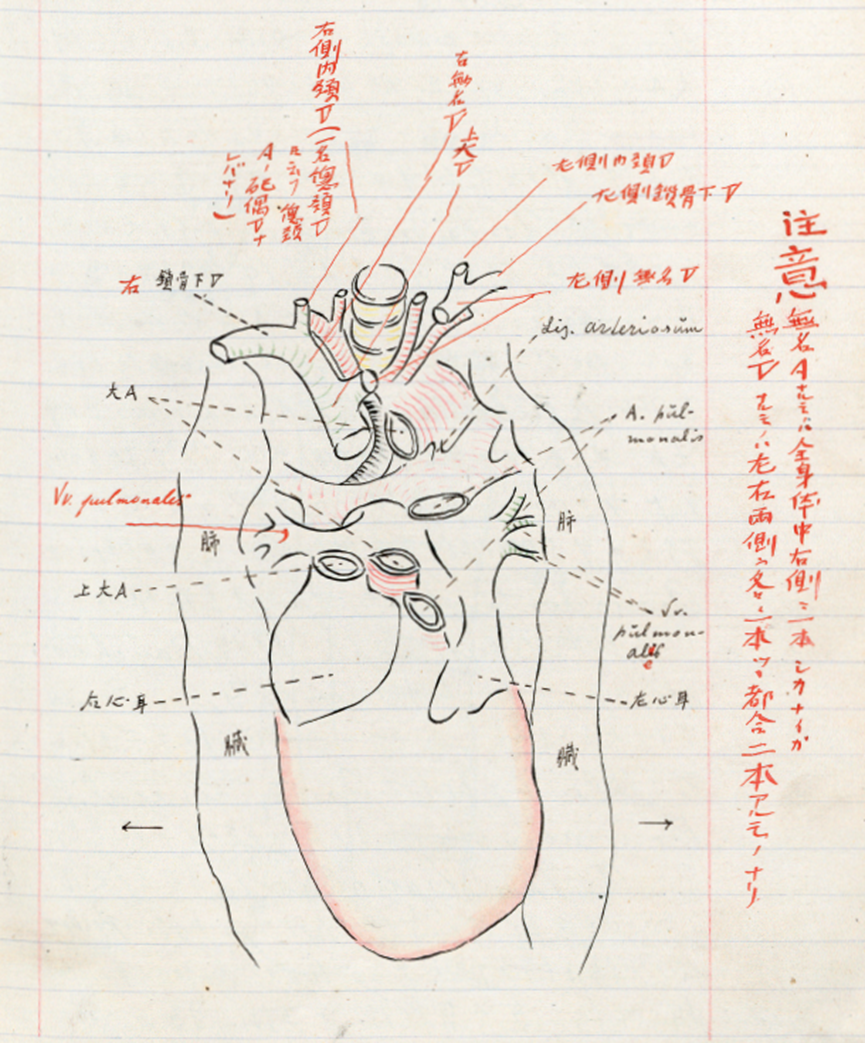 右側内頚V(一名傯頚V
ト云フ傯頚
A一死偶Vナ
レバナリ)
右無名V
上大V
左側内頚V
左側鎖骨下V
左側無名V
右 鎖骨下V
lig. arteriosum
大A
A. pŭl-
monalis
Vv. pulmonales
肺
肺
上大A
Vv.
pŭlmon-
ales
右心耳
左心耳
臓
臓
注意
無名Aナルモノハ全身体中右側ニ一本シカナイガ
無名Vナルモノハ左右両側ニ各々一本ヅヽ都合二本アルモノナリ